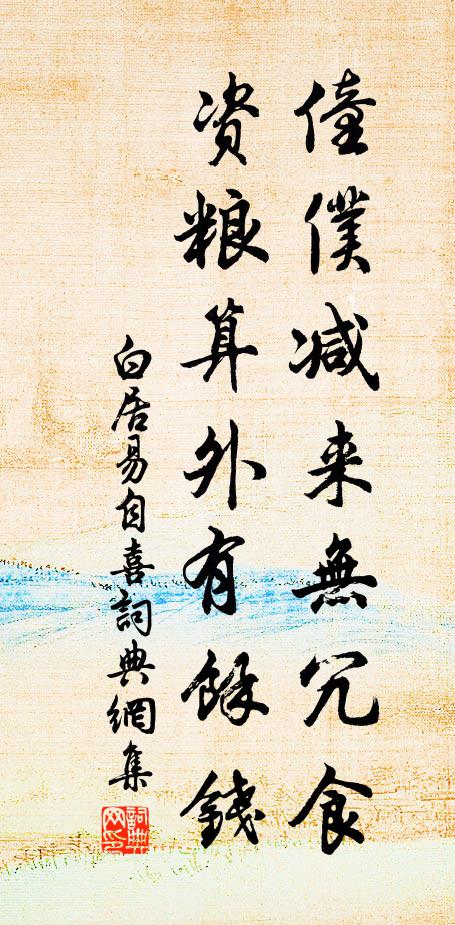 僮僕减来無冗食
资粮算外有餘錢
白居易自喜詞典網集
詞典网印